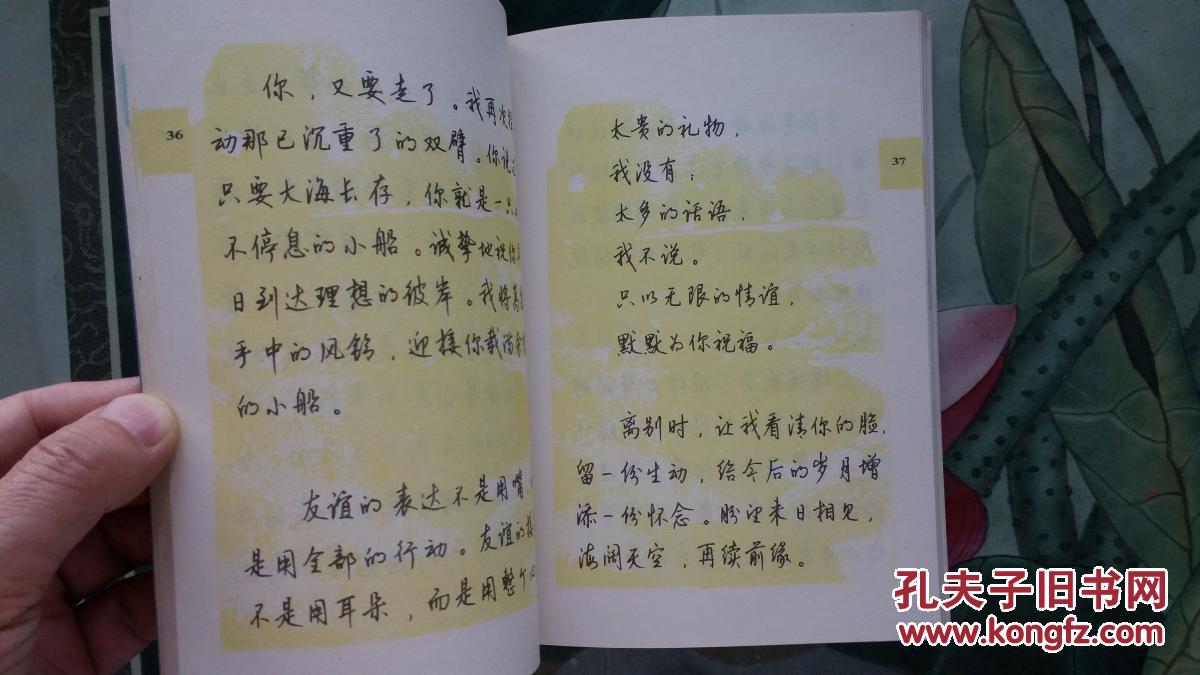 36
你，又要走了。我再次
动那已沉重了的双臂。你说
只要大海长存，你就是一只
不停息的小船。诚挚地祝你
日到达理想的彼岸。我将高
手中的风铃，迎接你载满
的小船。
友谊的表达不是用嘴
是用全部的行动。友谊的
不是用耳朵，而是用整个心
37
太贵的礼物，
我没有；
太多的话语，
我不说。
只以无限的情谊，
默默为你祝福。
离别时，让我看清你的脸，
留一份生动，给今后的岁月增
添一份怀念。盼望来日相见，
海阔天空，再续前缘。
孔夫子旧书网
www.kongfz.com